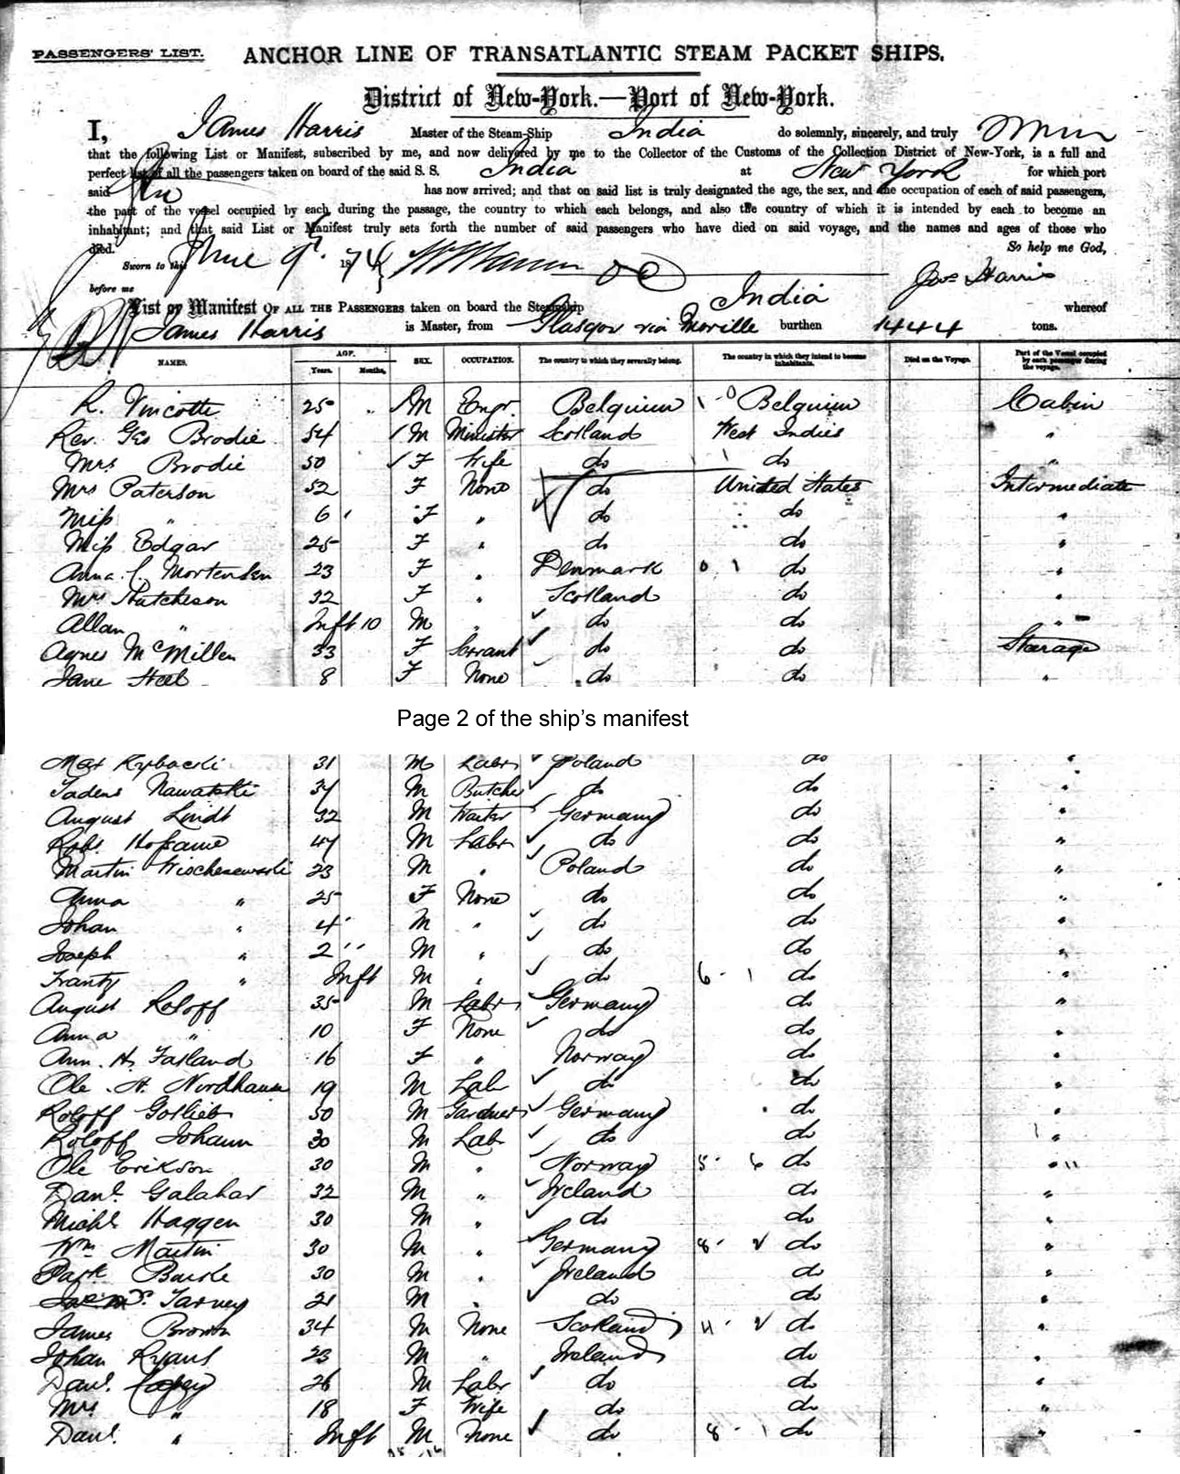 PASSENGERS' LIST. ANCHOR LINE OF TRANSATLANTIC STEAM PACKET SHIPS.
District of New-York.—Port of New-York.
I, James Harris Master of the Steam-Ship India do solemnly, sincerely, and truly
that the following List or Manifest, subscribed by me, and now delivered by me to the Collector of the Customs of the Collection District of New-York, is a full and
perfect list of all the passengers taken on board of the said S. S. India at New York for which port
said has now arrived; and that on said list is truly designated the age, the sex, and the occupation of each of said passengers,
the part of the vessel occupied by each during the passage, the country to which each belongs, and also the country of which it is intended by each to become an
inhabitant; and that said List or Manifest truly sets forth the number of said passengers who have died on said voyage, and the names and ages of those who
died. So help me God,
Sworn to this June 9th 1874 Jas Harris
before me
List or Manifest OF ALL THE PASSENGERS taken on board the Steamship India whereof
James Harris is Master, from Glasgow via Moville burthen 1444 tons.
NAMES. AGE. Years. Months. SEX. OCCUPATION. The country to which they severally belong. The country in which they intend to become inhabitants. Died on the Voyage. Part of the Vessel occupied by each passenger during the voyage.
R. Vincotte 25 M Engr. Belgium 1 - 0 Belgium Cabin
Rev. Geo Brodie 54 M Minister Scotland West Indies "
Mrs Brodie 50 F Wife do do "
Mrs Paterson 52 F None do United States Intermediate
Miss " 6 F " do do "
Miss Edgar 25 F " do do "
Anna C. Mortensen 23 F " Denmark 0 1 do "
Mrs Hutcheson 32 F " Scotland do "
Allan " Inft 10 M " do do "
Agnes McMillen 33 F Servant do do Steerage
Jane Steel 8 F None do do "
Page 2 of the ship's manifest
31 M Labr Poland do "
Nawatski 34 M Butcher do do "
August Lindt 32 M Waiter Germany do "
Robt. 47 M Labr do do "
Martin 23 M " Poland do "
Anna " 25 F None do do "
Johan " 4 M " do do "
Joseph " 2 M " do do "
Frantz " Inft M " do 6 - 1 do "
August Roloff 35 M Labr Germany do "
Anna " 10 F None do do "
Ann. H. 16 F " Norway do "
Ole H. Nordhausen 19 M Lab do do "
Roloff Gotlieb 50 M Gardner Germany do "
Roloff Johann 30 M Lab do do "
Ole Erikson 30 M " Norway 5 - 6 do "
Danl. Galahar 32 M " Ireland do "
Michl Haggen 30 M " do do "
Wm Martin 30 M " Germany 8 - do "
Burke 30 M " Ireland do "
21 M " do do "
James Brown 34 M None Scotland do "
Johan 23 M " Ireland do "
Danl. 26 M Labr do do "
Mrs " 18 F Wife do do "
Danl. " Inft M None do 8 - 1 do "